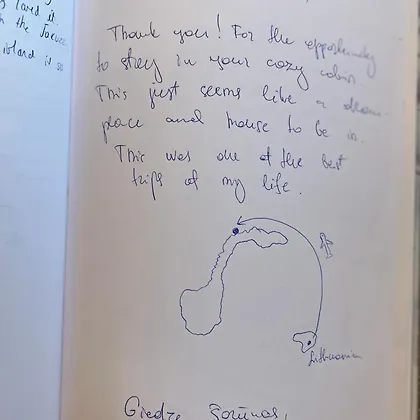 loved it.
h the Jacuzz
island is so
Thank you! For the opportunity
to stay in your cozy cabin
This just seems like a dream
place and house to be in.
This was one of the best
trips of my life.
Lithuania
Giedre Šarūnas,